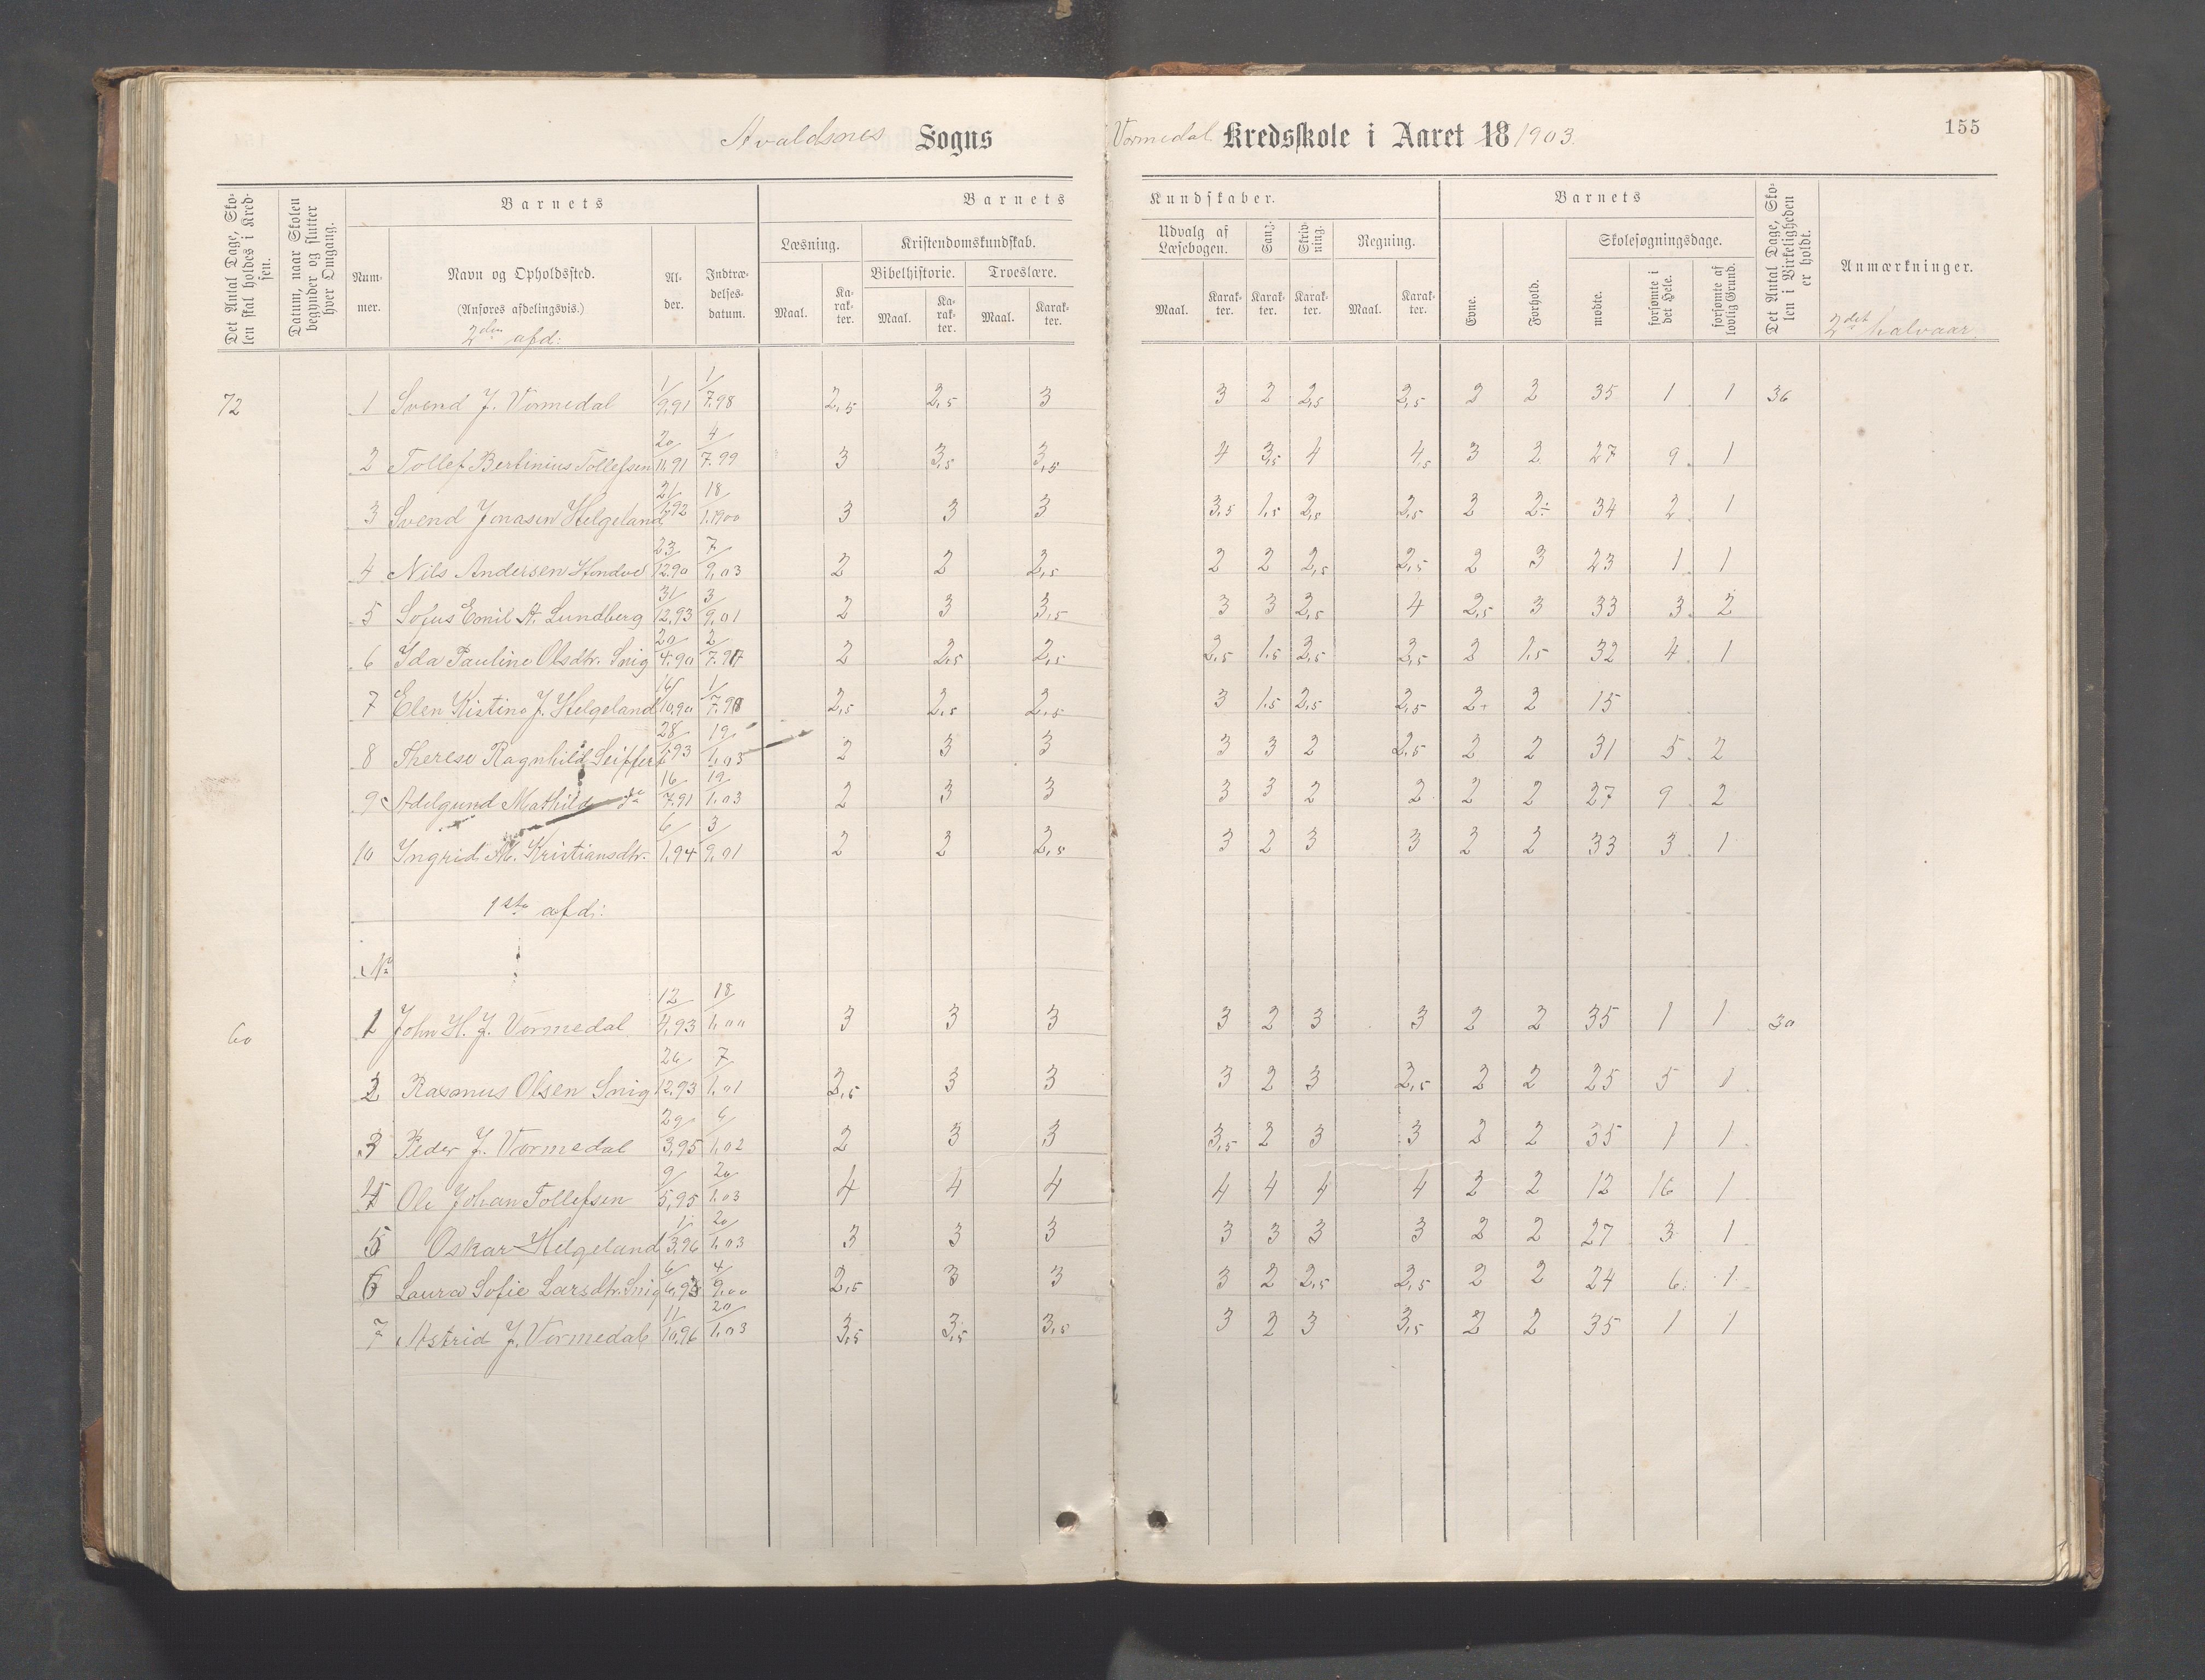 Avaldsnes Sogns Vormedal Kredsskole i Aaret 18/1903. 155
Det Antal Dage, Skolen skal holdes i Kredsen.
Datum, naar Skolen begynder og slutter hver Omgang.
Barnets
Nummer.
Navn og Opholdssted.
(Anføres afdelingsvis.)
2den afd:
Alder.
Indtrædelsesdatum.
Barnets Kundskaber.
Læsning.
Maal. Karakter.
Kristendomskundskab.
Bibelhistorie. Troeslære.
Maal. Karakter. Maal. Karakter.
Udvalg af Læsebogen.
Maal. Karakter.
Sang. Karakter.
Skrivning. Karakter.
Regning.
Maal. Karakter.
Barnets
Evne. Forhold.
Skolesøgningsdage.
mødte. forsømte i det Hele. forsømte af lovlig Grund.
Det Antal Dage, Skolen i Virkeligheden er holdt.
Anmærkninger.
2det halvaar.
72 1 Svend J. Vormedal 1/9,91 1/7.98 2,5 2,5 3 3 2 2,5 2,5 2 2 35 1 1 36
2 Tollef Bertinius Tollefsen 20/11,91 4/7.99 3 3,5 3,5 4 3,5 4 4,5 3 2 27 9 1
3 Svend Jonasen Helgeland 21/1,92 18/1.1900 3 3 3 3,5 1,5 2,5 2,5 2 2÷ 34 2 1
4 Nils Andersen 23/12.90 7/9,03 2 2 2,5 2 2 2,5 2,5 2 3 23 1 1
5 Sofus Emil A. Lundberg 31/12,93 3/9,01 2 3 3,5 3 3 2,5 4 2,5 3 33 3 2
6 Ida Pauline Olsdtr. Snig 20/4.90 2/7.97 2 2,5 2,5 2,5 1,5 2,5 2,5 2 1,5 32 4 1
7 Elen Kistine J. Helgeland 16/10,90 1/7.98 2,5 2,5 2,5 3 1,5 2,5 2,5 2+ 2 15
8 Therese Ragnhild Seiffert 28/1,93 19/1,03 2 3 3 3 3 2 2,5 2 2 31 5 2
9 Adelgund Mathilde do 16/7,91 19/1.03 2 3 3 3 3 2 2 2 2 27 9 2
10 Ingrid M. Kristiansdtr. 6/1,94 3/9,01 2 2 2,5 3 2 3 3 2 2 33 3 1
1ste afd:
No
60 1 John H. J. Vormedal 12/4,93 18/1,00 3 3 3 3 2 3 3 2 2 35 1 1 30
2 Rasmus Olsen Snig 26/12,93 7/1,01 2,5 3 3 3 2 3 2,5 2 2 25 5 1
3 Peder J. Vormedal 29/3,95 6/1,02 2 3 3 3,5 2 3 3 2 2 35 1 1
4 Ole Johan Tollefsen 9/5,95 20/1.03 4 4 4 4 4 4 4 2 2 12 16 1
5 Oskar Helgeland 1/3,96 20/1.03 3 3 3 3 3 3 3 2 2 27 3 1
6 Laura Sofie Larsdtr. Snig 6/6,93 4/9,00 2,5 3 3 3 2 2,5 2,5 2 2 24 6 1
7 Astrid J. Vormedal 11/10,96 20/1,03 3,5 3,5 3,5 3 2 3 3,5 2 2 35 1 1